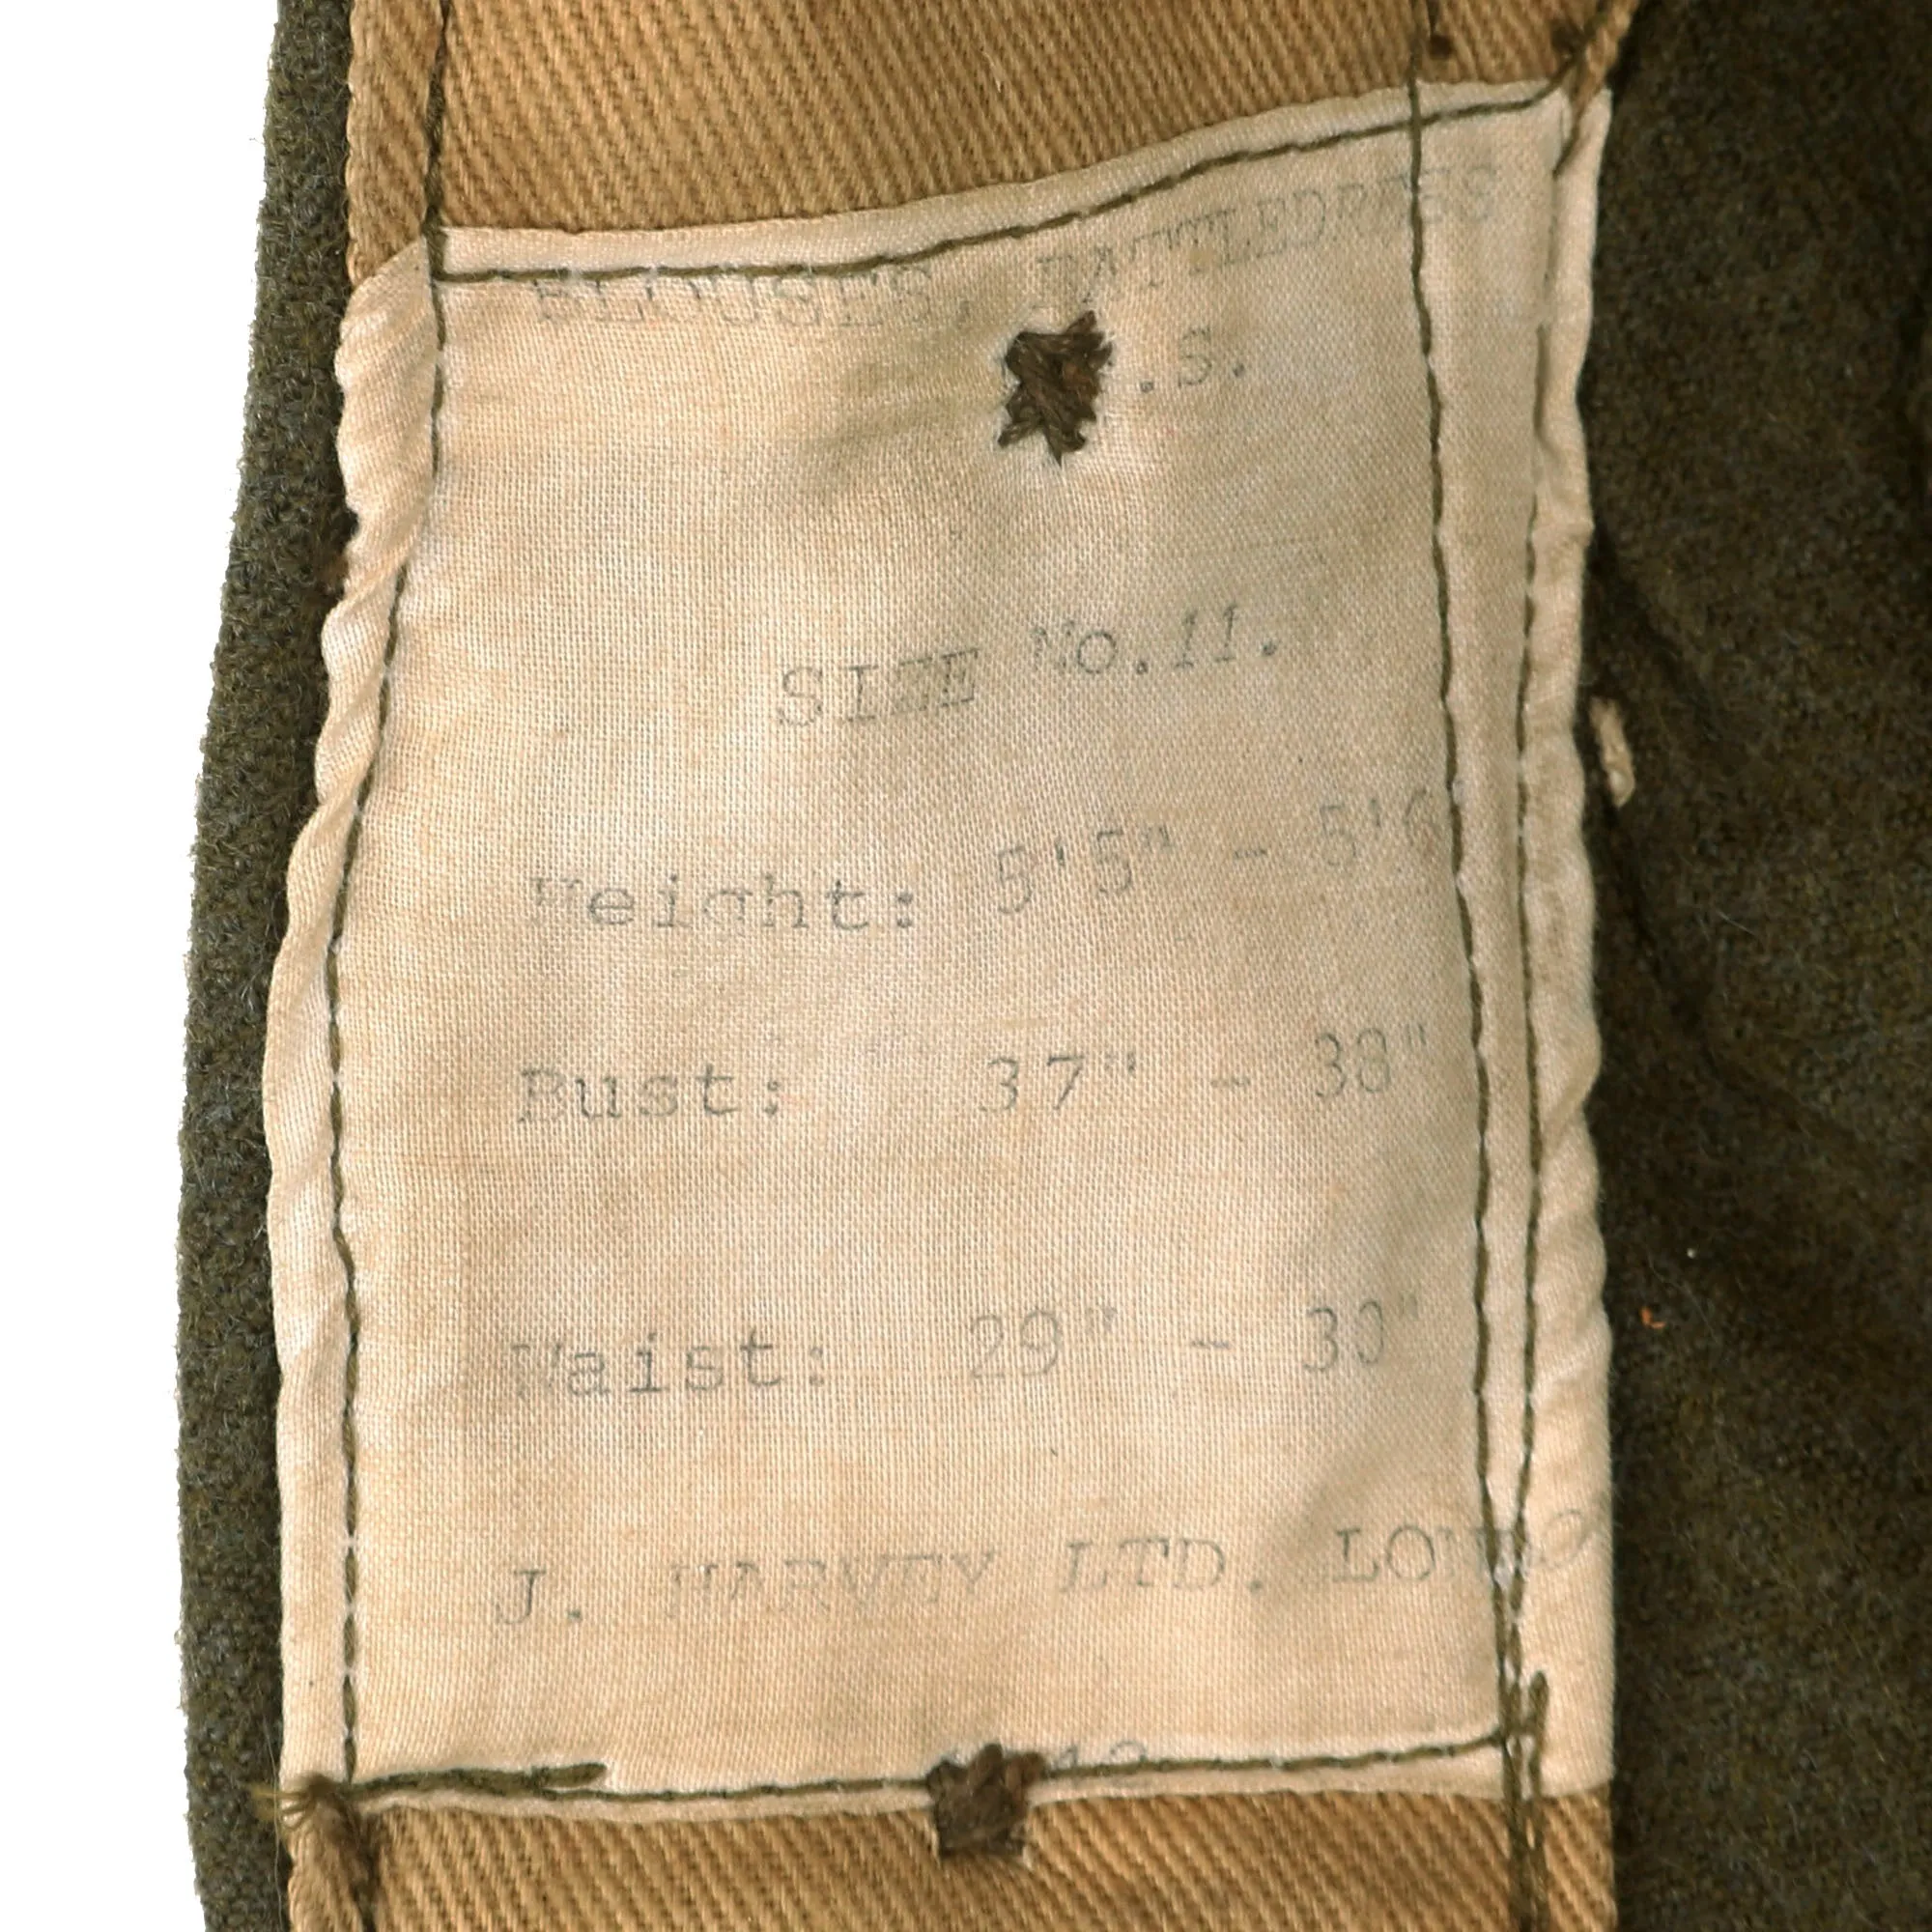 BLOUSES, BATTLEDRESS
.S.
SIZE No.11.
Weight: 5'5" - 5'6
Bust: 37" - 38"
Waist: 29" - 30"
J. HARVEY LTD. LONDO